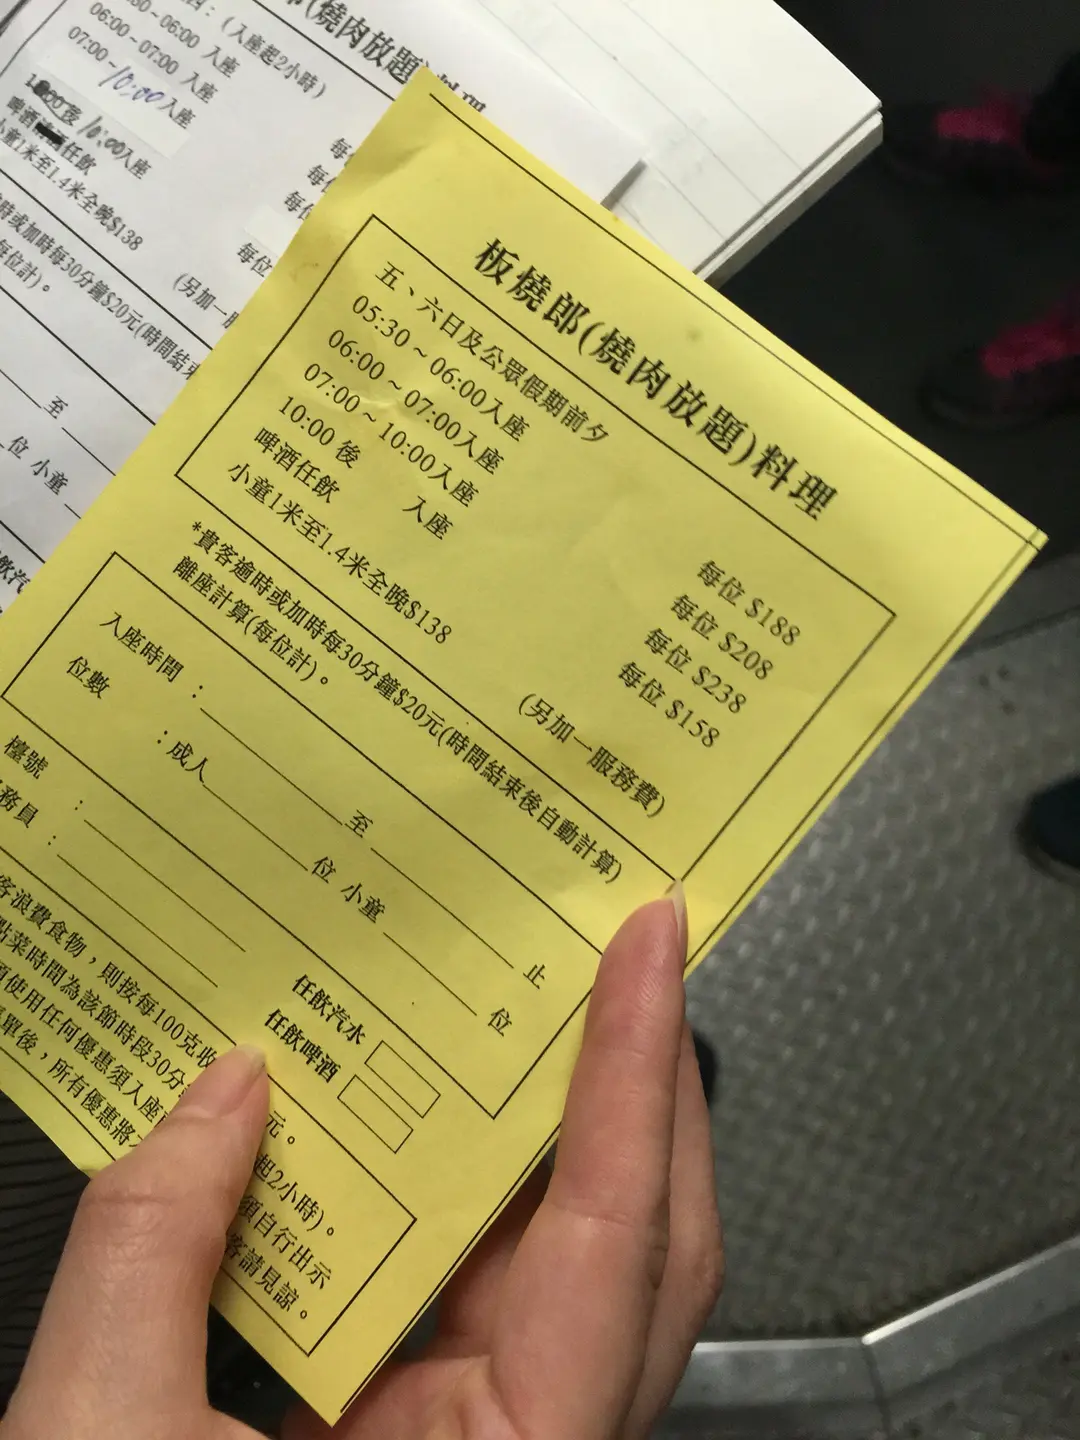 西：（入座起2小時）
郎(燒肉放題)料理
:30~06:00 入座
06:00~07:00 入座
07:00~10:00入座
後 10:00入座
啤酒 任飲
小童1米至1.4米全晚$138
每位
(另加一服
時或加時每30分鐘$20元(時間結束
每位計)。
至
位 小童
飲汽
板燒郎(燒肉放題)料理
五、六日及公眾假期前夕
05:30~06:00入座 每位 $188
06:00~07:00入座 每位 $208
07:00~10:00入座 每位 $238
10:00 後 入座 每位 $158
啤酒任飲
小童1米至1.4米全晚$138 (另加一服務費)
*貴客逾時或加時每30分鐘$20元(時間結束後自動計算)
離座計算(每位計)。
入座時間： 至 止
位數 ：成人 位 小童 位
檯號 ：
務員 ：
任飲汽水
任飲啤酒
客浪費食物，則按每100克收 元。
點菜時間為該節時段30分 起2小時)。
使用任何優惠須入座 須自行出示
單後，所有優惠將 客請見諒。